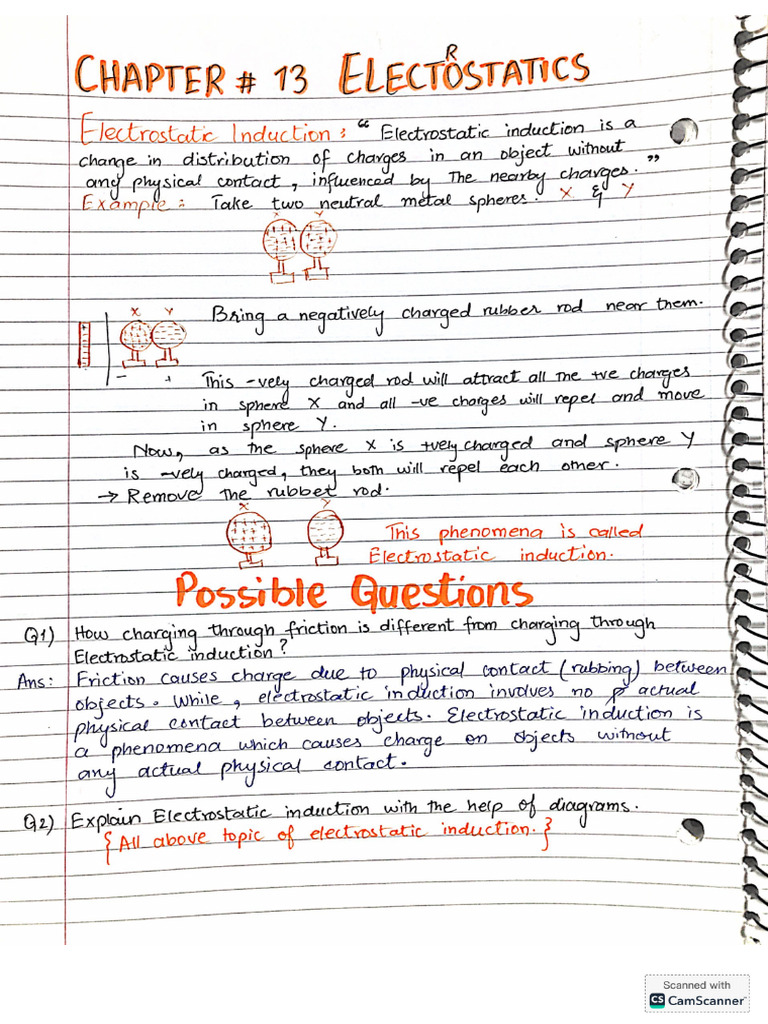 CHAPTER # 13 ELECTROSTATICS
Electrostatic Induction: " Electrostatic induction is a
change in distribution of charges in an object without
any physical contact, influenced by The nearby charges."
Example: Take two neutral metal spheres. X & Y
X Y
X Y Bring a negatively charged rubber rod near them.
- +
This -vely charged rod will attract all the +ve charges
in sphere X and all -ve charges will repel and move
in sphere Y.
Now, as the sphere X is +vely charged and sphere Y
is -vely charged, they both will repel each other.
→ Remove The rubber rod.
X Y
This phenomena is called
Electrostatic induction.
Possible Questions
Q1) How charging through friction is different from charging through
Electrostatic induction?
Ans: Friction causes charge due to physical contact (rubbing) between
objects. While, electrostatic induction involves no actual
physical contact between objects. Electrostatic induction is
a phenomena which causes charge on objects without
any actual physical contact.
Q2) Explain Electrostatic induction with the help of diagrams.
{All above topic of electrostatic induction.}
Scanned with
CS CamScanner